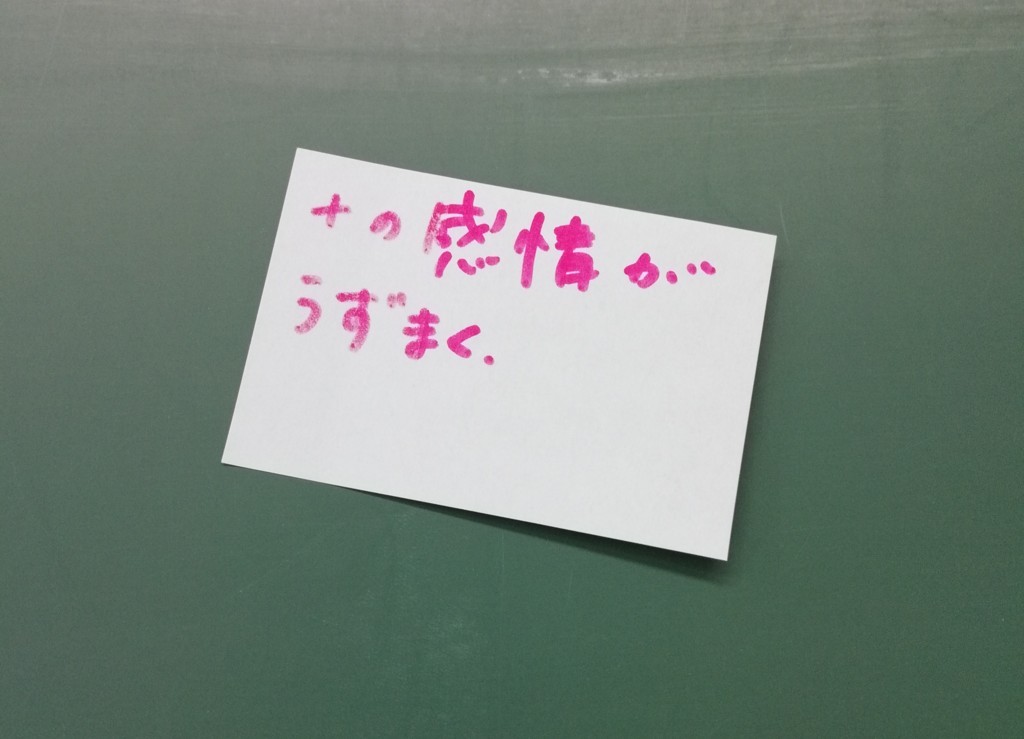 +の感情が
うずまく.